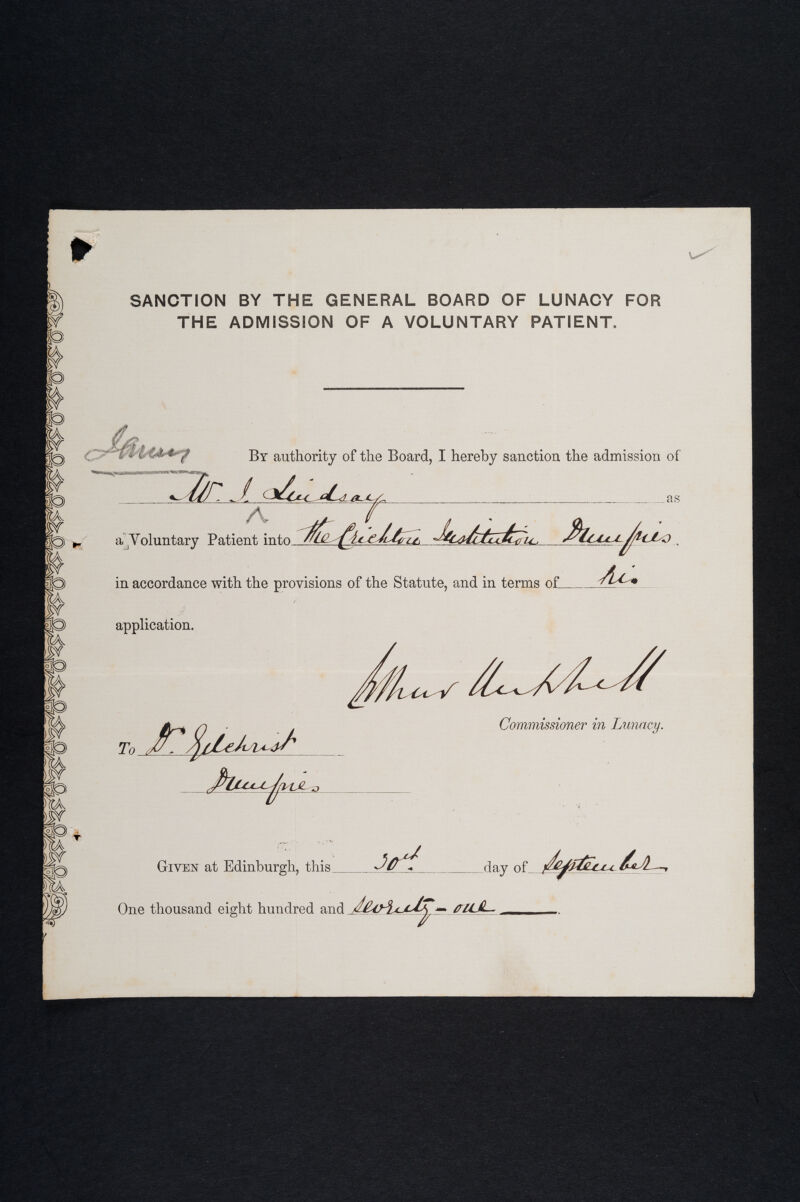 SANCTION BY THE GENERAL BOARD OF LUNACY FOR
THE ADMISSION OF A VOLUNTARY PATIENT.
James
By authority of the Board, I hereby sanction the admission of
W. J. Lindsay as
a Voluntary Patient into The Crichton Institution Dumfries.
in accordance with the provisions of the Statute, and in terms of his
application.
Arthur Mitchell
Commissioner in Lunacy.
To Dr. Gilchrist
Dumfries
Given at Edinburgh, this 30th day of September
One thousand eight hundred and seventy-one